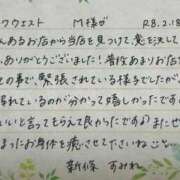 クウエスト M様が R8.2.18
んあるお店から当店を見つけて、意を決して
、ありがとうございました！普段あまりお店
との事で、緊張されている様子でしたが、
慣れているのが分かって嬉しかったです
いいと言ってもらえて良かったです♪またぜ
まったお身体を癒させてくださいね
新條 すみれ